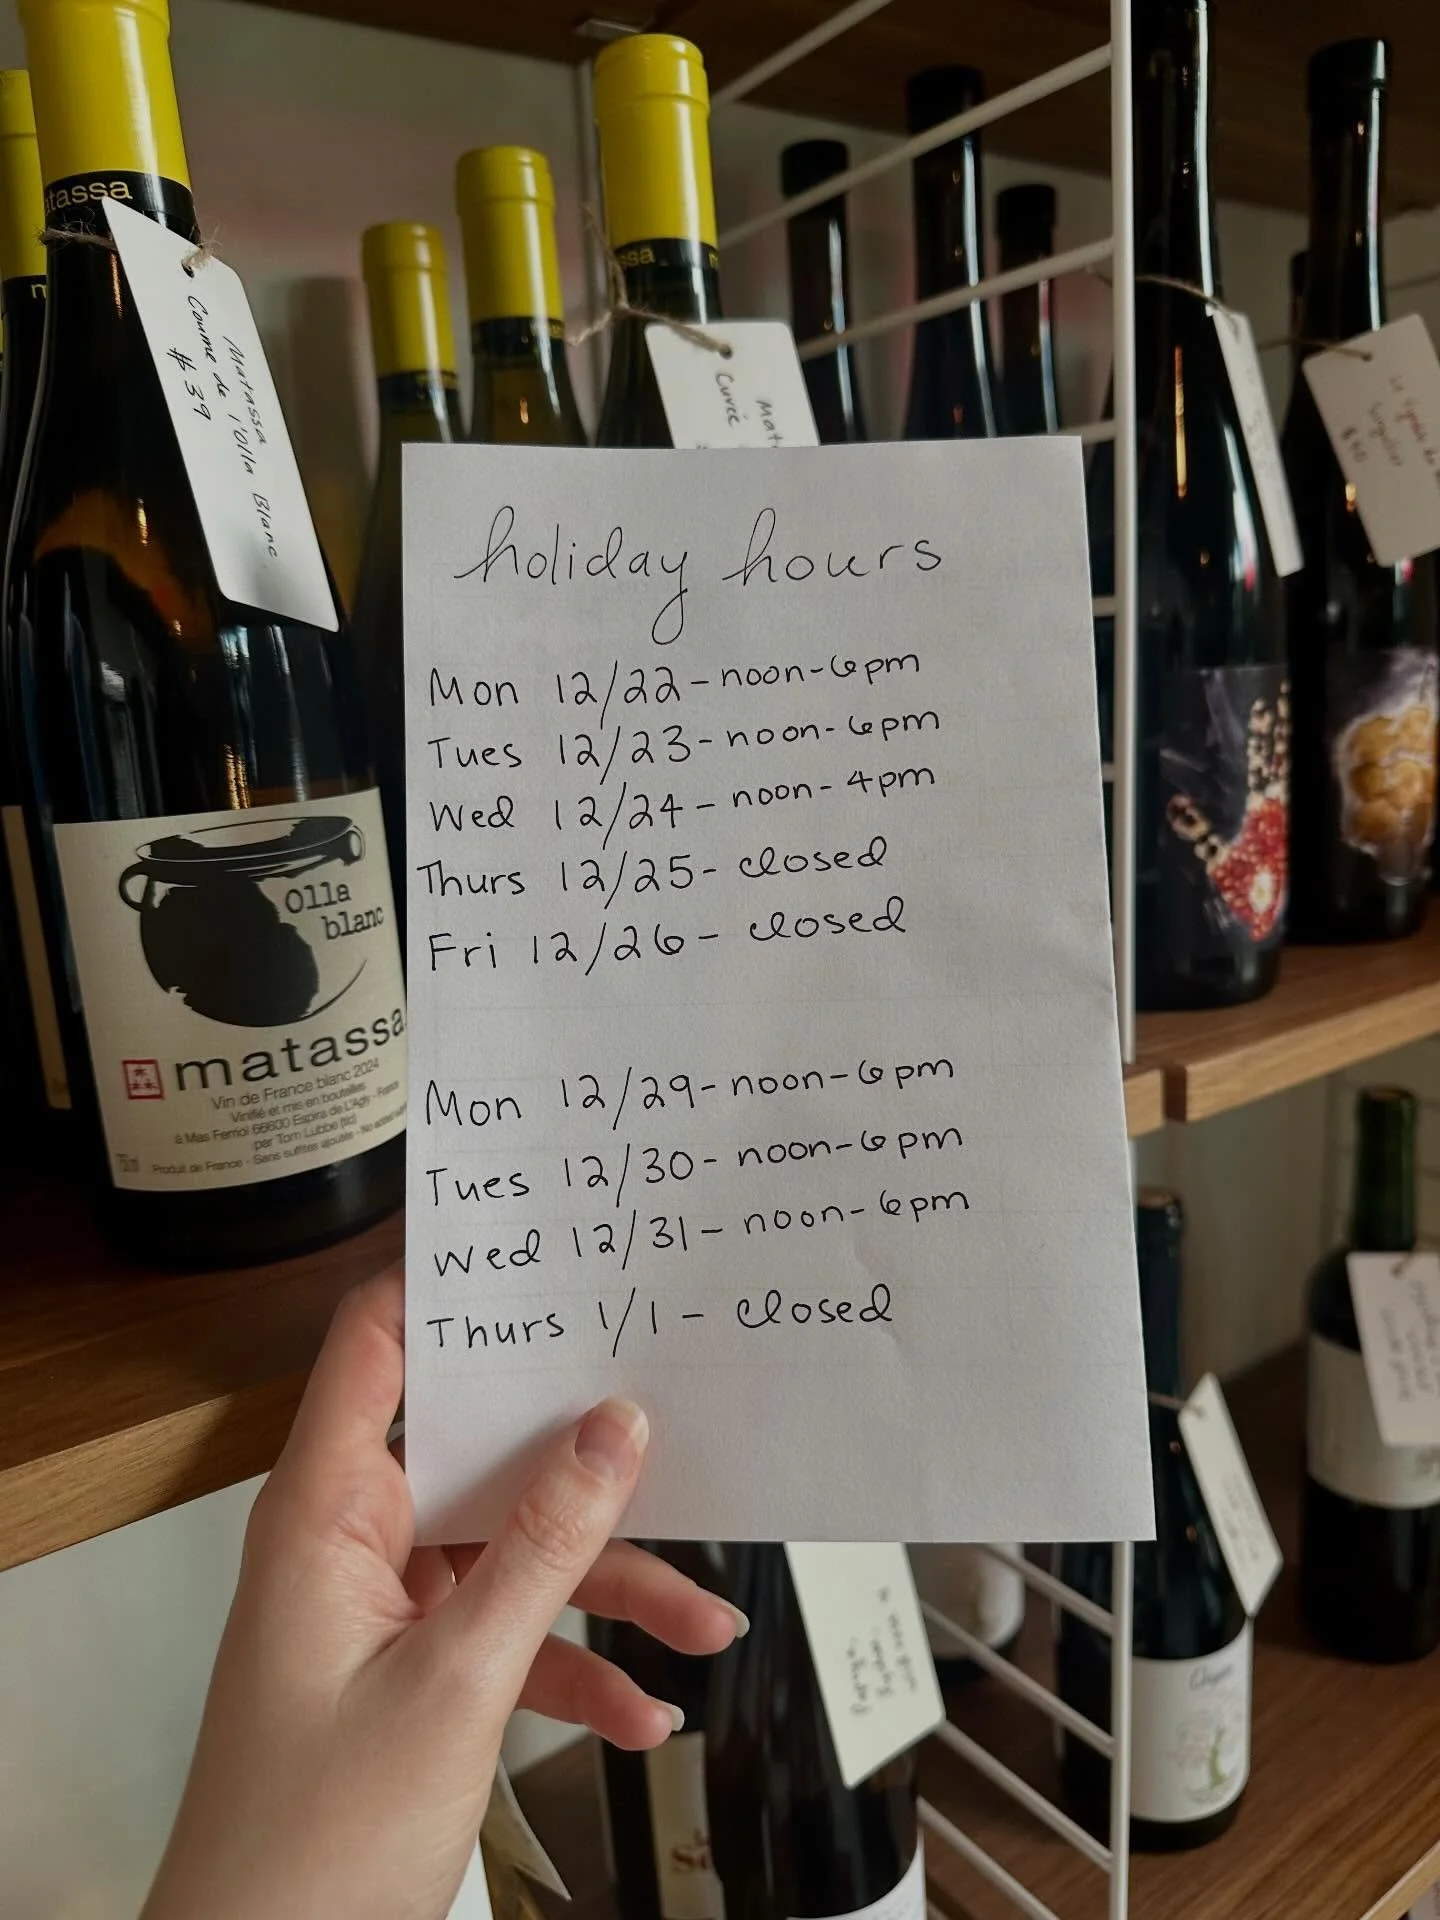 holiday hours
Mon 12/22-noon-6pm
Tues 12/23-noon-6pm
Wed 12/24-noon-4pm
Thurs 12/25-closed
Fri 12/26-closed
Mon 12/29-noon-6pm
Tues 12/30-noon-6pm
Wed 12/31-noon-6pm
Thurs 1/1-closed
matassa
Matassa
Coume de l'Olla Blanc
$39
Cuvée
Olla
blanc
matassa
Vin de France blanc 2024
Vinifié et mis en bouteilles
à Mas Ferriol 66600 Espira de L'Agly - France
par Tom Lubbe
Produit de France - Sans sulfites ajoutés - No added